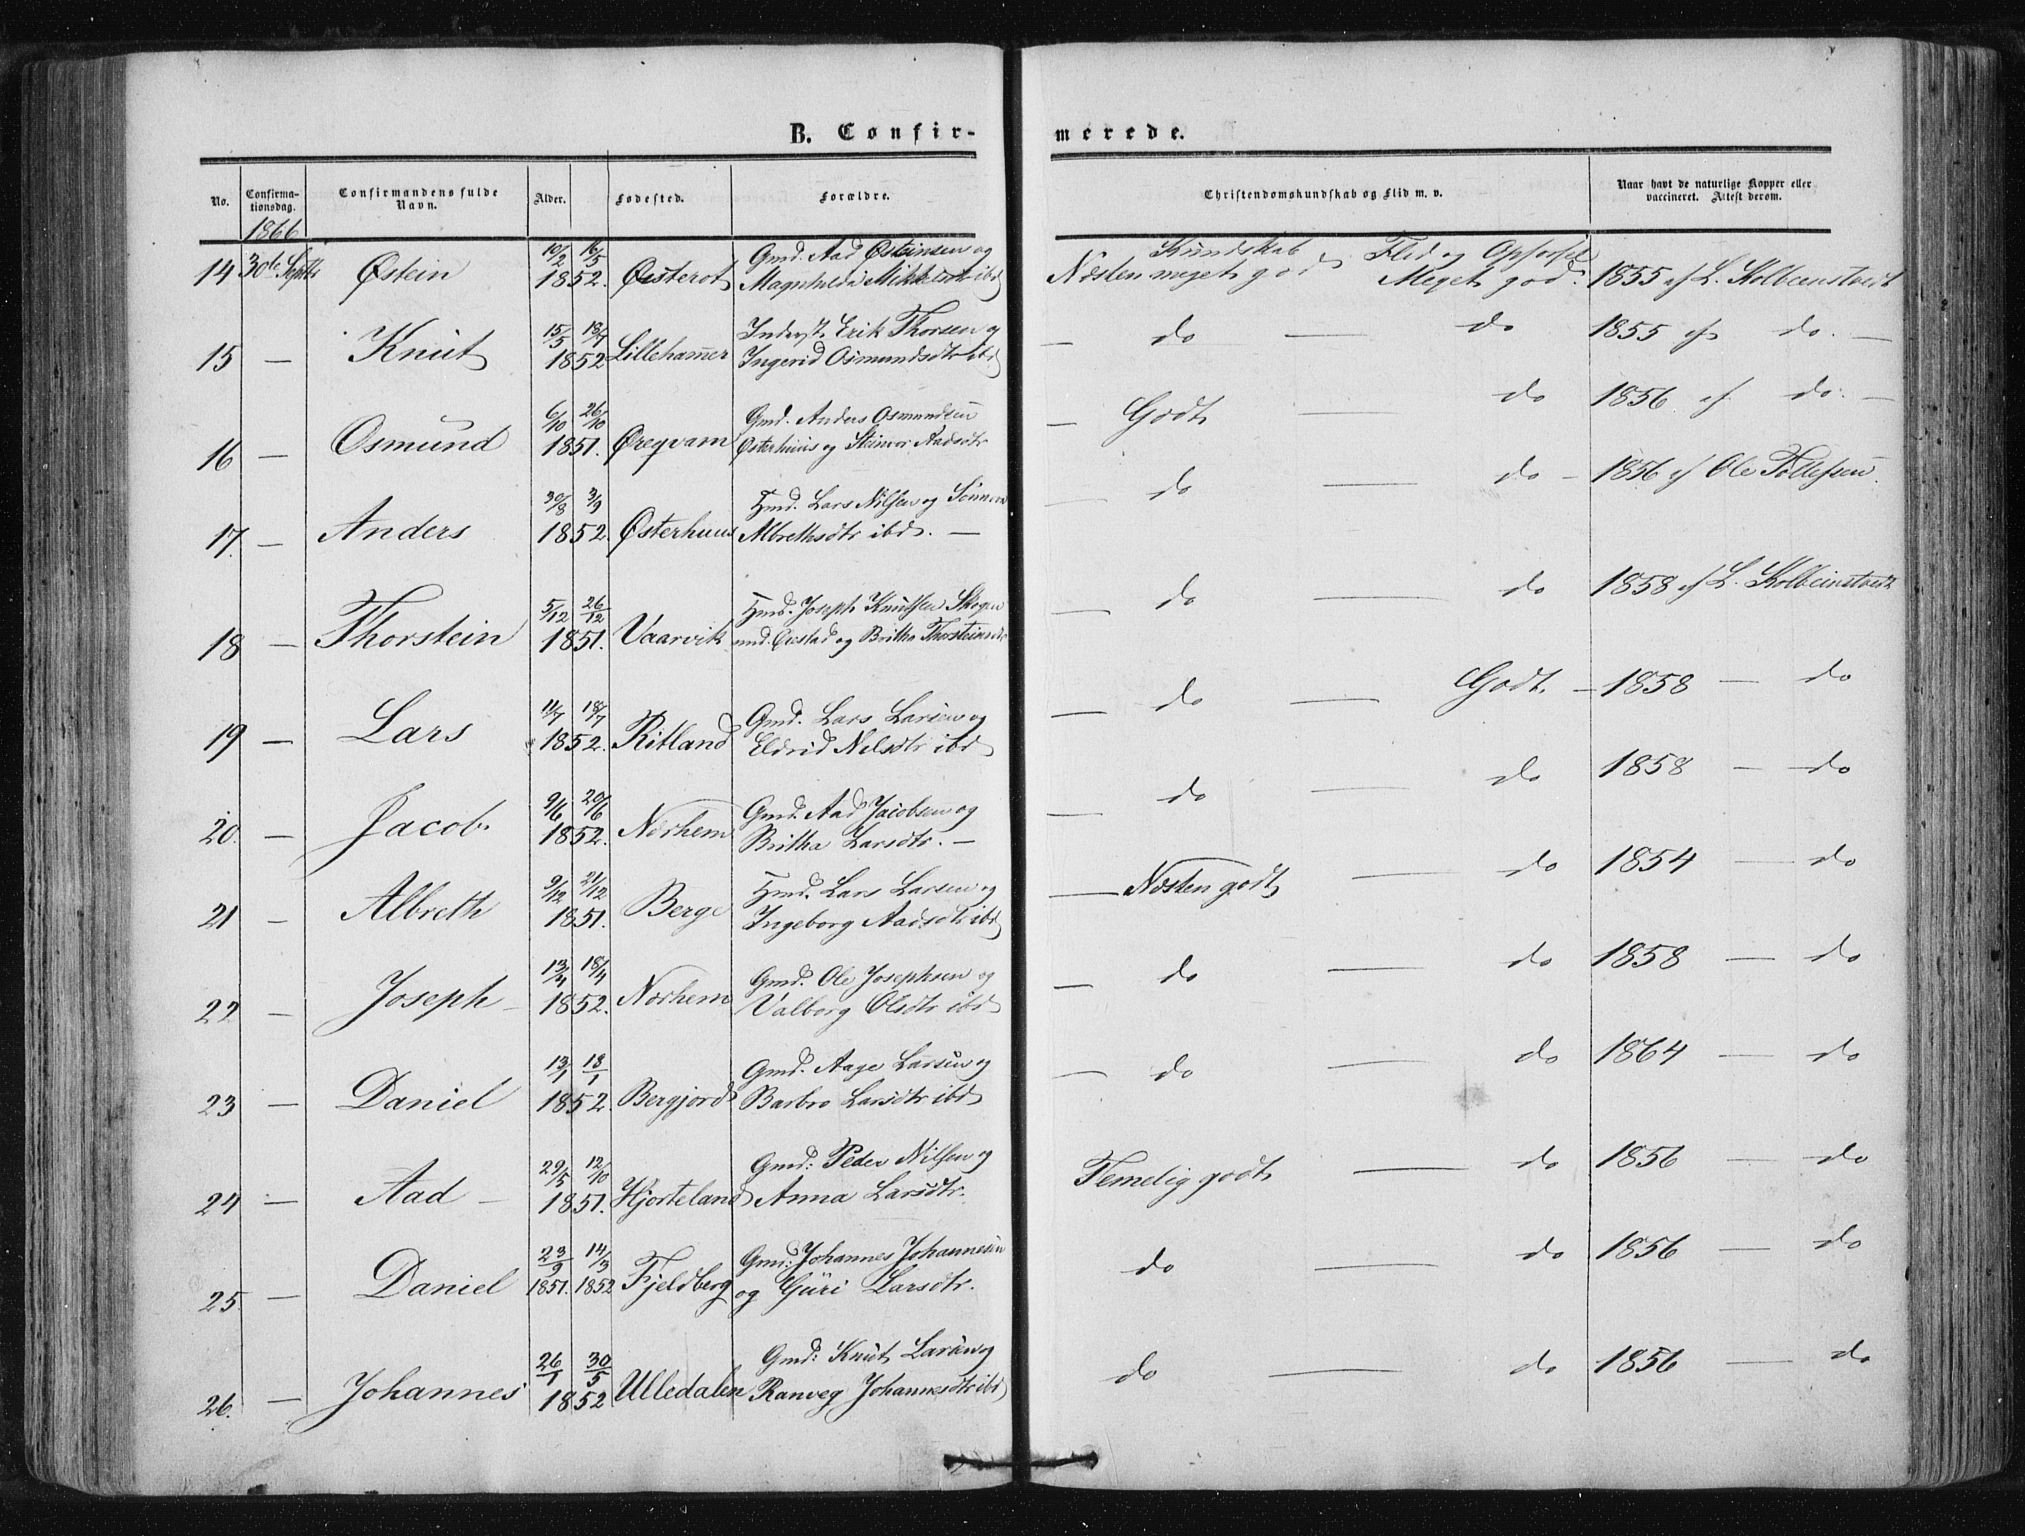 B. Confir-
merede.
No.
Confirma-
tionsdag.
Confirmandens fulde
Navn.
Alder.
Fødested.
Forældre.
Christendomskundskab og Flid m. v.
Naar havt de naturlige Kopper eller
vaccineret. Attest derom.
1866
14 30te Septbr Østein 10/2 16/5 1852. Gmd. Aad Østeinsen og
Magnhilda Mikkelsdtr ibd
Kundskab Flid og Opførsel
Næsten meget godt Meget godt. 1855 af L. Kolbeenstvedt
15 — Knut 15/5 18/7 1852 Lillehamer Inderst Erik Thorsen og
Ingerid Osmundsdtr ibd
— do — do 1855 af do. —
16 — Osmund 6/10 26/10 1851. Øreqvam Gmd. Anders Osmundsen
Østerhuus og Steinvor Aadsdtr
— Godt do 1856 af do. —
17. — Anders 30/8 3/9 1852. Østerhuus Hmd. Lars Nilsen og
Albrethsdtr ibd. —
— do do - 1856 af Ole Tollefsen.
18 — Thorstein 5/12 26/12 1851. Vaarvik Hmd. Joseph Knudsen Skogen
und. og Britha Thorsteinsdtr
— do — do 1858 af L. Kolbeinstvedt
19 — Lars 11/7 18/7 1852. Ritland Gmd. Lars Larsen og
Eldrid Nelsdtr ibd
— do — Godt. - 1858 — do
20. — Jacob 9/6 20/6 1852. Nærhem Gmd. Aad Jacobsen og
Britha Larsdtr. —
— do — do 1858 — do
21 — Albreth 9/12 21/12 1851. Berge Hmd. Lars Larsen og
Ingeborg Aadsdtr ibd
— Næsten godt — do 1854 — do
22 — Joseph 13/4 18/4 1852. Nærhem Gmd. Ole Josephsen og
Valborg Olsdtr ibd
— do — do 1858 — do
23 — Daniel 13/1 18/1 1852. Bergjord Gmd. Aage Larsen og
Barbro Larsdtr ibd
— do — do 1864 — do
24 — Aad — 29/5 12/10 1851. Hjorteland Gmd: Peder Nilsen og
Anna Larsdtr.
Temelig godt — do 1856 — do
25. — Daniel 23/9 1851. 14/3 1852 Fjeldberg Gmd: Johannes Johannesen
og Guri Larsdtr.
do — do 1856 — do
26. — Johannes 26/1 30/5 1852 Ulledalen Gmd: Knut Larsen og
Ranveg Johannesdtr ibd
do — do 1856 — do